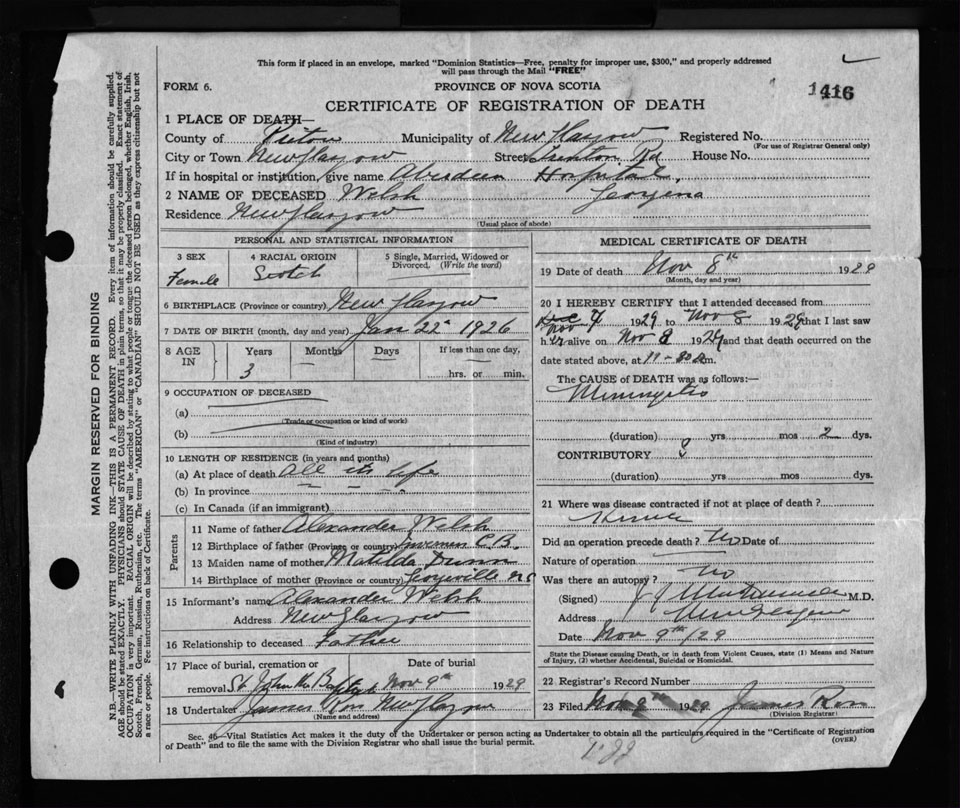 This form if placed in an envelope, marked "Dominion Statistics—Free, penalty for improper use, $300," and properly addressed
will pass through the Mail "FREE"
FORM 6.
PROVINCE OF NOVA SCOTIA
1416
CERTIFICATE OF REGISTRATION OF DEATH
1 PLACE OF DEATH—
County of Pictou Municipality of New Glasgow Registered No.
(For use of Registrar General only)
City or Town New Glasgow Street Trenton Rd House No.
If in hospital or institution, give name Aberdeen Hospital
2 NAME OF DECEASED Welsh Georgena
Residence New Glasgow
(Usual place of abode)
PERSONAL AND STATISTICAL INFORMATION
3 SEX 4 RACIAL ORIGIN 5 Single, Married, Widowed or
Divorced. (Write the word)
Female Scotch
6 BIRTHPLACE (Province or country) New Glasgow
7 DATE OF BIRTH (month, day and year) Jan 22nd 1926
8 AGE IN Years Months Days If less than one day,
3 — — hrs. or min.
9 OCCUPATION OF DECEASED
(a)
(Trade or occupation or kind of work)
(b)
(Kind of industry)
10 LENGTH OF RESIDENCE (in years and months)
(a) At place of death All its life
(b) In province
(c) In Canada (if an immigrant)
Parents
11 Name of father Alexander Welsh
12 Birthplace of father (Province or country) Inverness C.B.
13 Maiden name of mother Matilda Dunn
14 Birthplace of mother (Province or country) N.S.
15 Informant's name Alexander Welsh
Address New Glasgow
16 Relationship to deceased Father
17 Place of burial, cremation or Date of burial
removal St John the Baptist Nov 9th 1929
18 Undertaker James Ross New Glasgow
(Name and address)
MEDICAL CERTIFICATE OF DEATH
19 Date of death Nov 8th 1929
(Month, day and year)
20 I HEREBY CERTIFY that I attended deceased from
Nov 7 1929 to Nov 8 1929 that I last saw
her alive on Nov 8 1929 and that death occurred on the
date stated above, at 11-30 m.
The CAUSE OF DEATH was as follows:—
Miningetis
(duration) yrs mos 2 dys.
CONTRIBUTORY
(duration) yrs mos dys.
21 Where was disease contracted if not at place of death?
Home
Did an operation precede death? No Date of
Nature of operation
Was there an autopsy? No
(Signed) M.D.
Address New Glasgow
Date Nov 9th/29
State the Disease causing Death, or in death from Violent Causes, state (1) Means and Nature
of Injury, (2) whether Accidental, Suicidal or Homicidal.
22 Registrar's Record Number
23 Filed Nov 1929 James Ross
(Division Registrar)
Sec. 46—Vital Statistics Act makes it the duty of the Undertaker or person acting as Undertaker to obtain all the particulars required in the "Certificate of Registration
of Death" and to file the same with the Division Registrar who shall issue the burial permit.
(OVER)
MARGIN RESERVED FOR BINDING
N.B.—WRITE PLAINLY WITH UNFADING INK—THIS IS A PERMANENT RECORD. Every item of information should be carefully supplied.
AGE should be stated EXACTLY. PHYSICIANS should STATE CAUSE OF DEATH in plain terms, so that it may be properly classified. Exact statement of
OCCUPATION is very important. RACIAL ORIGIN will be described by stating to what people or tongue the deceased person belonged, whether English, Irish,
Scotch, French, German, Russian, Ruthenian, etc. The terms "AMERICAN" or "CANADIAN" SHOULD NOT BE USED as they express citizenship but not
a race or people. Fee instructions on back of Certificate.